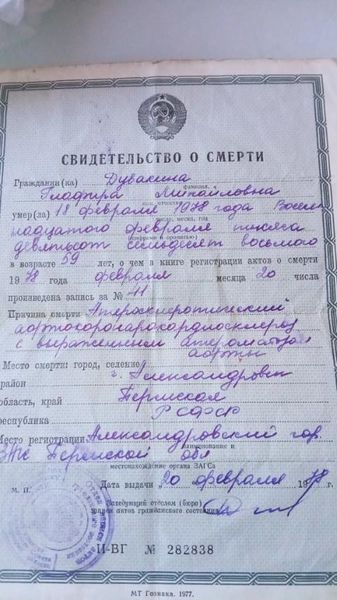 СВИДЕТЕЛЬСТВО О СМЕРТИ
Гражданин (ка) Дувакина
фамилия,
Глафира Михайловна
имя, отчество
умер(ла) 18 февраля 1978 года Восем
число, месяц, год
надцатого февраля тысяча
девятьсот семьдесят восьмого
в возрасте 59 лет, о чем в книге регистрации актов о смерти
1978 года февраля месяца 20 числа
произведена запись за № 41
Причина смерти Атеросклеротический
с выраженным атероматозом
аорты
Место смерти: город, селение г. Александровск
район
область, край Пермская
республика РСФСР
Место регистрации Александровский гор.
наименование и
ЗАГС Пермской обл
местонахождение органа ЗАГСа
Дата выдачи 20 февраля 1978 г.
М. П.
Заведующий отделом (бюро)
записи актов гражданского состояния
II-ВГ № 282838
МТ Гознака. 1977.